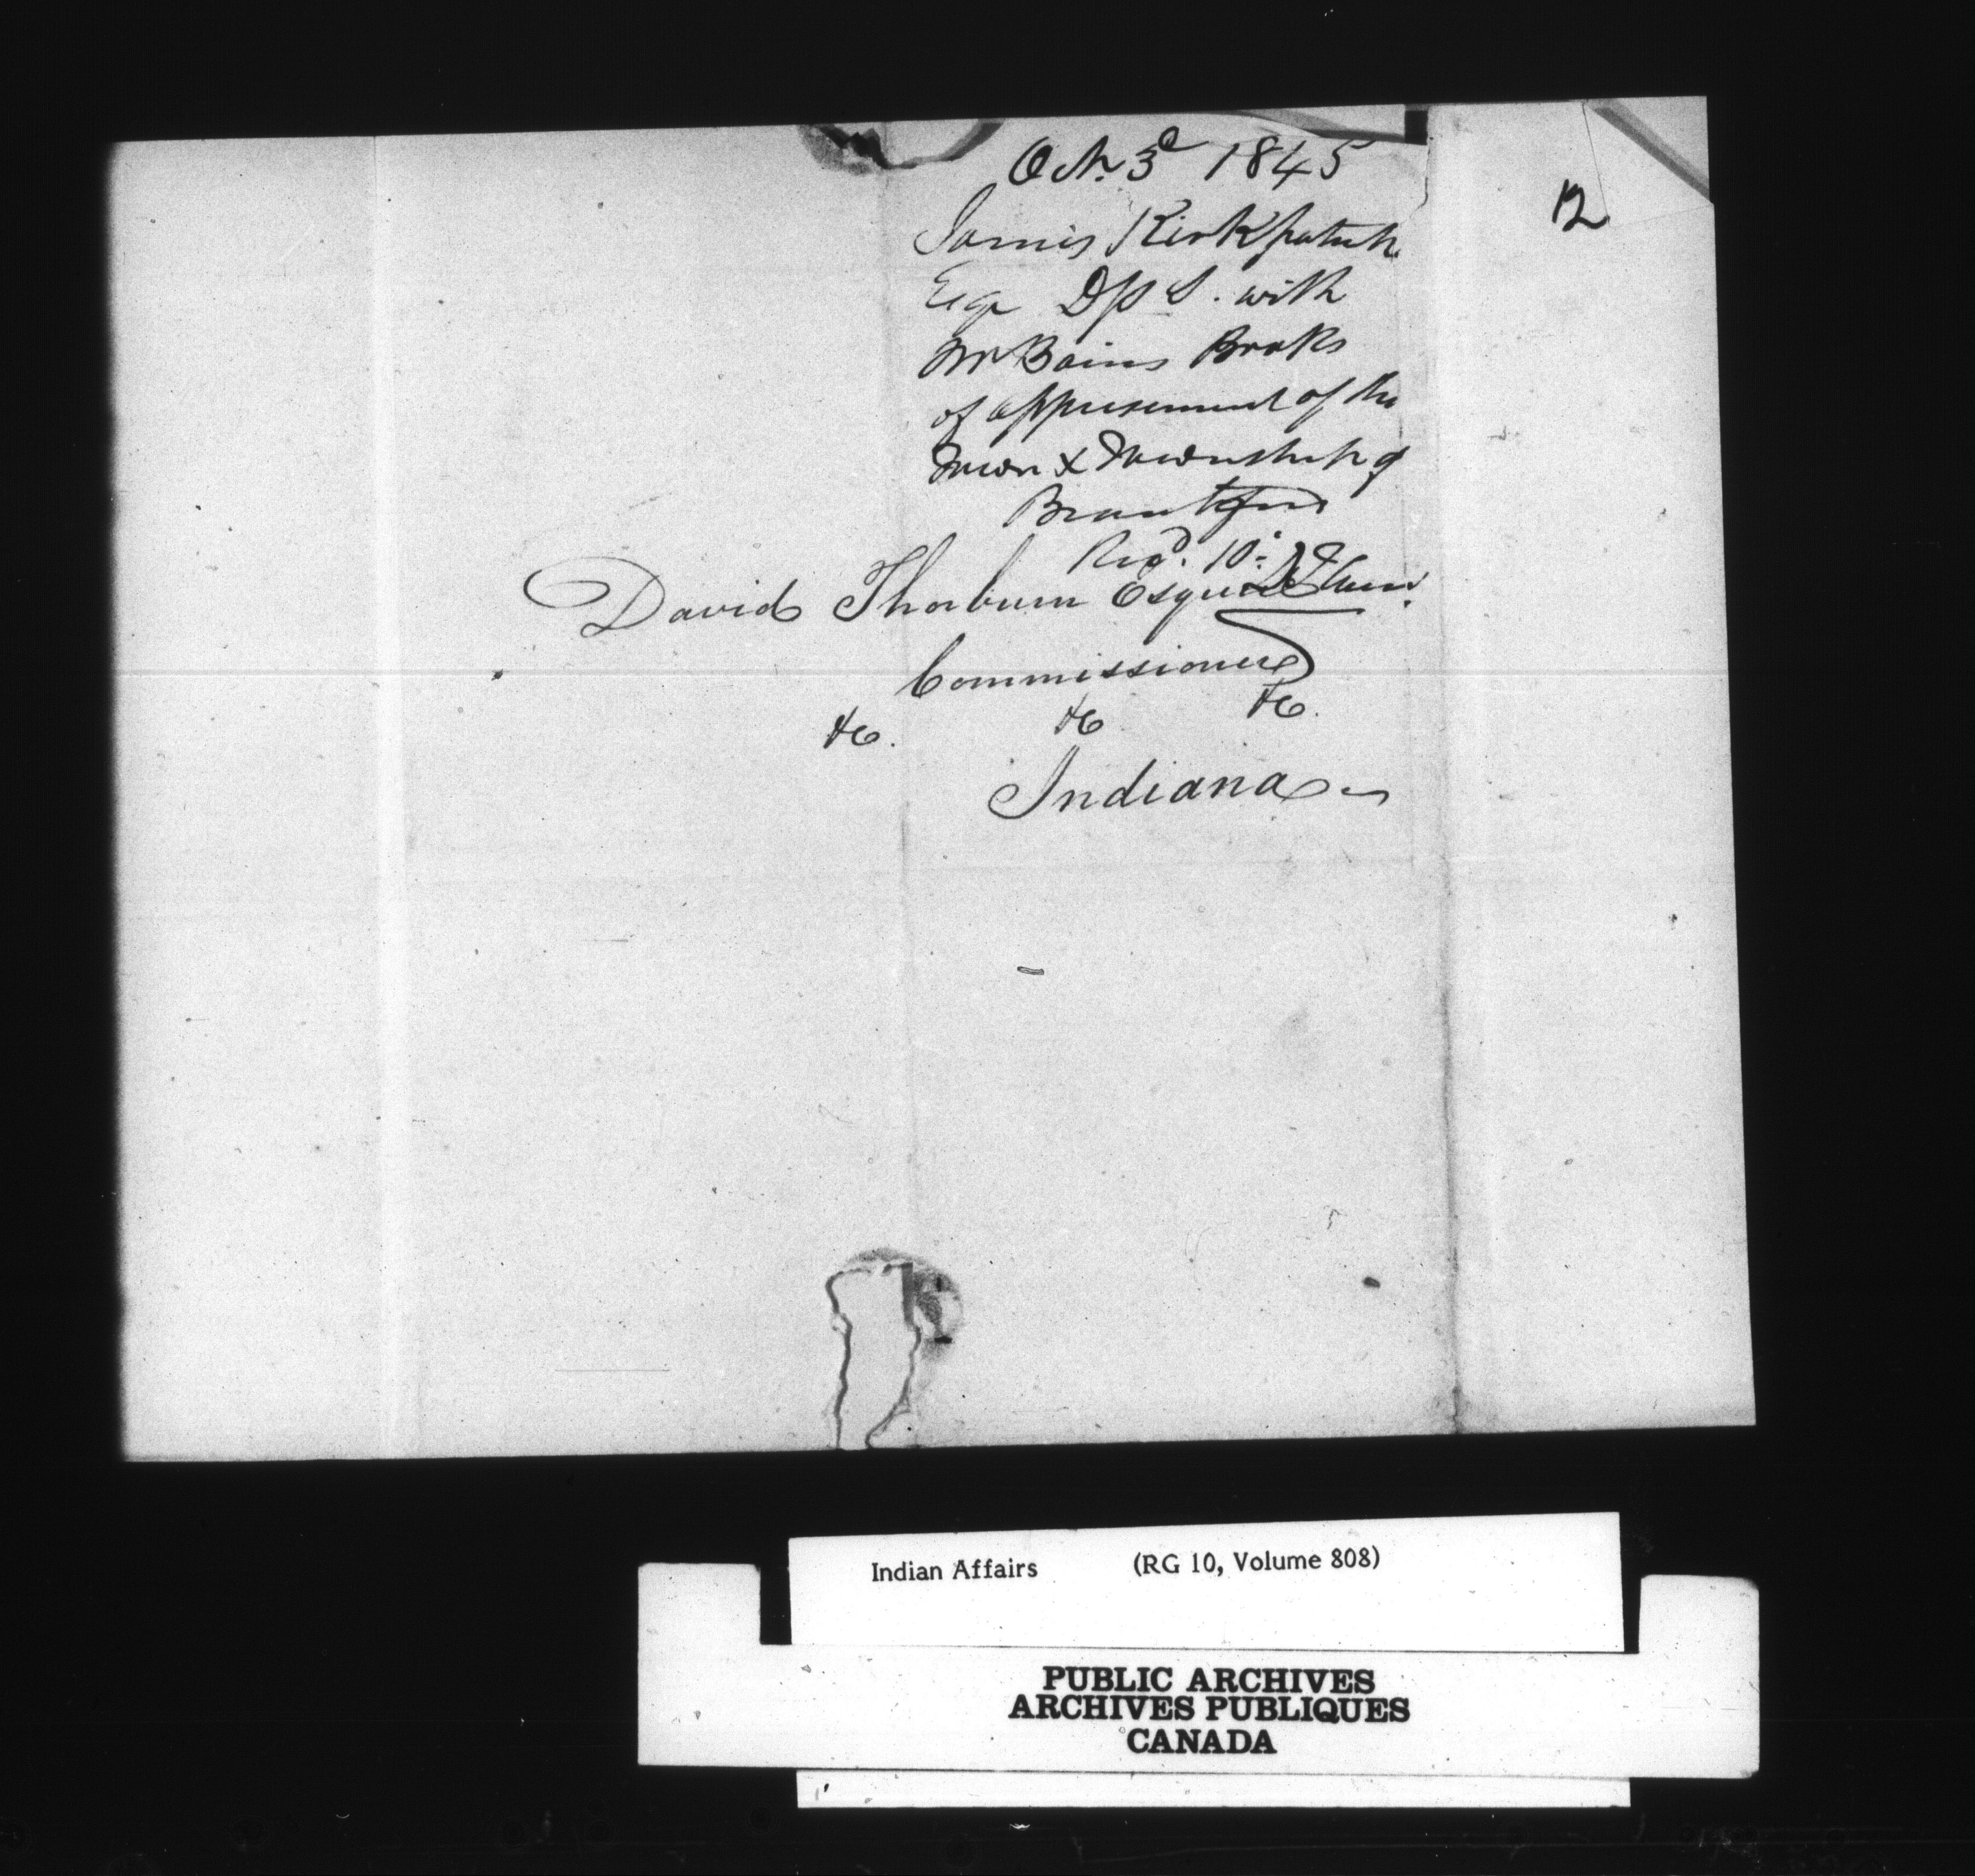 Oct. 3d 1845
12
James Kirkpatrick
Esqr D P S. with
Mr Bains Books
of appraisement of the
Town & Township of
Brantford
Recd. 10:
David Thorburn Esquire
Commissioner
&c. &c &c.
Indiana
Indian Affairs (RG 10, Volume 808)
PUBLIC ARCHIVES
ARCHIVES PUBLIQUES
CANADA